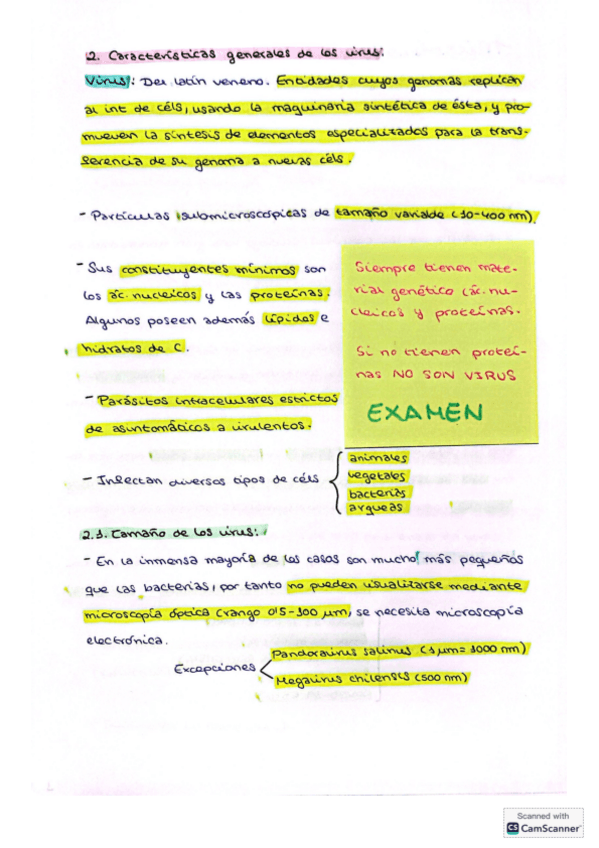 2. Características generales de los virus:
Virus: Del latín veneno. Entidades cuyos genomas replican
al int de céls, usando la maquinaria sintética de ésta, y pro-
mueven la síntesis de elementos especializados para la trans-
ferencia de su genoma a nuevas céls.
- Partículas submicroscópicas de tamaño variable (10-400 nm).
- Sus constituyentes mínimos son
los ác. nucleicos y las proteínas.
Algunos poseen además lípidos e
hidratos de C.
Siempre tienen mate-
rial genético (ác. nu-
cleicos y proteínas.
Si no tienen proteí-
nas NO SON VIRUS
EXAMEN
- Parásitos intracelulares estrictos
de asintomáticos a virulentos.
- Infectan diversos tipos de céls
animales
vegetales
bacterias
arqueas
2.1. Tamaño de los virus:
- En la inmensa mayoría de los casos son mucho más pequeños
que las bacterias, por tanto no pueden visualizarse mediante
microscopía óptica (rango 0'5-100 μm), se necesita microscopía
electrónica.
Excepciones
Pandoravirus salinus (1 μm = 1000 nm)
Megavirus chilensis (500 nm)
Scanned with
CS CamScanner